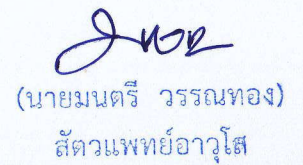 (นายมนตรี วรรณทอง)
สัตวแพทย์อาวุโส